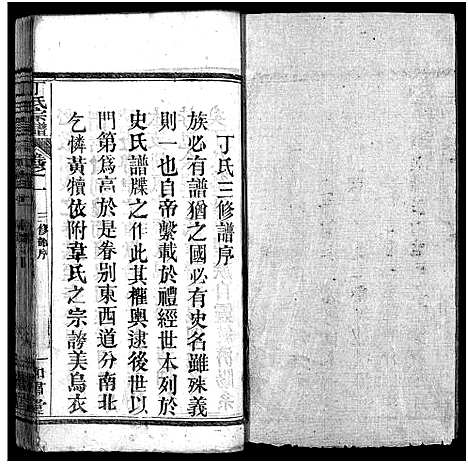 丁氏三修譜序
族必有譜猶之國必有史名雖殊義
則一也自帝繫載於禮經世本列於
史氏譜牒之作此其權輿逮後世以
門第爲高於是卷别東西道分南北
乞憐黃犢依附韋氏之宗誇美烏衣
丁氏宗譜
卷之一
三修譜序